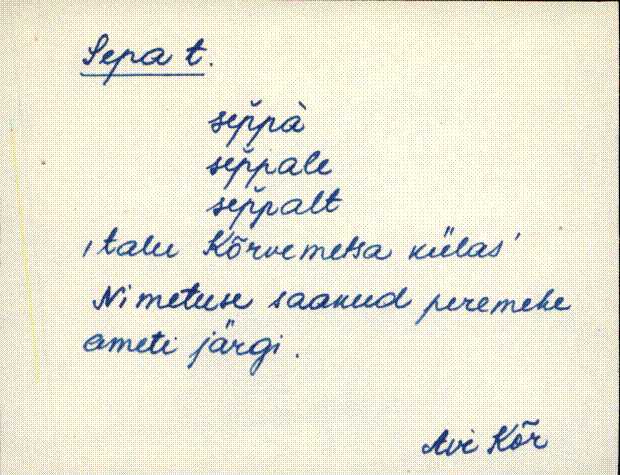 Sepa t.
sep̆pà
sep̆pale
sep̆palt
'talu Kõrvemetsa külas'
Nimetuse saanud peremehe
ameti järgi.
Avi Kõr